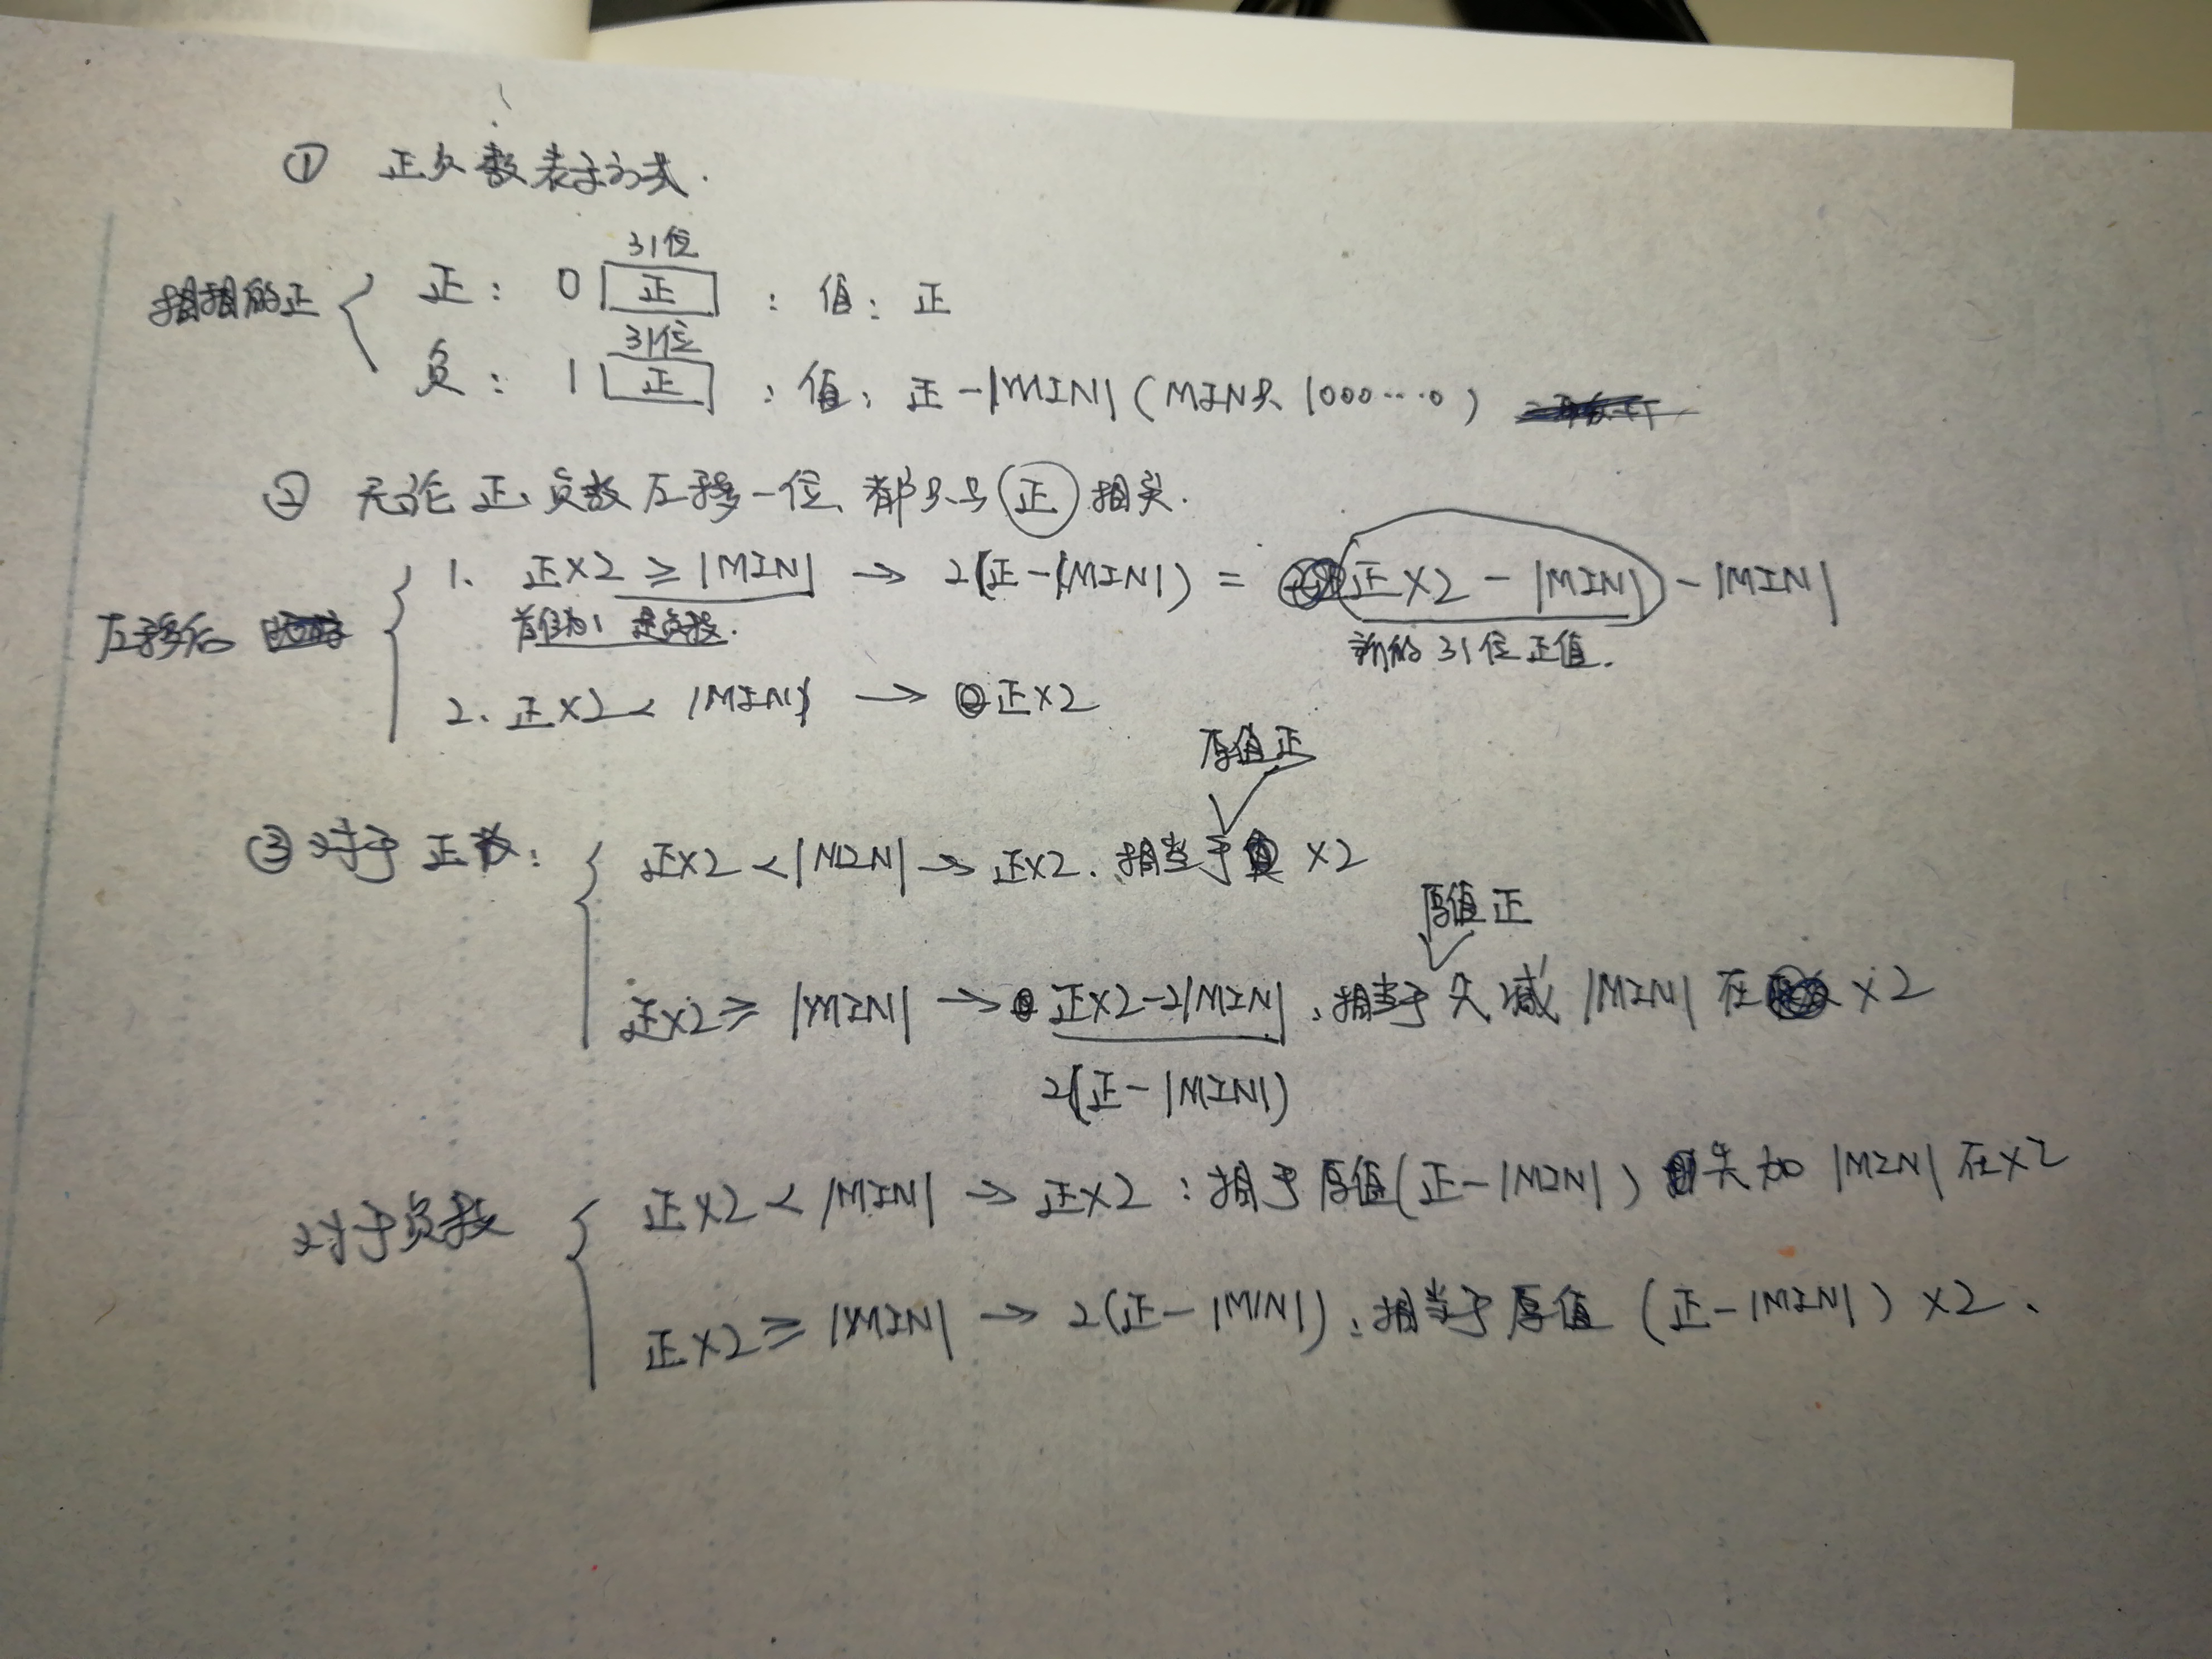 ① 正负数表示方式.
31位
相同的正 { 正： 0 [正] ：值：正
31位
负： 1 [正] ：值：正-|MIN| (MIN是 1000....0)
② 无论正、负数左移一位、都只与 正 相关.
1、 正×2 ≥ |MIN| → 2(正-|MIN|) = 正×2 - |MIN| - |MIN|
左移后
首位为1 是负数. 新的 31位正值.
2、正×2 < |MIN| → 正×2
原值正
③ 对于正数： 正×2 < |MIN| → 正×2. 相当于 ×2
原值正
正×2 ≥ |MIN| → 正×2-2|MIN| ，相当于 先减 |MIN| 在 ×2
2(正-|MIN|)
对于负数 正×2 < |MIN| → 正×2：相于原值(正-|MIN|) 先加 |MIN| 在×2
正×2 ≥ |MIN| → 2(正-|MIN|)，相当于原值 (正-|MIN|) ×2.